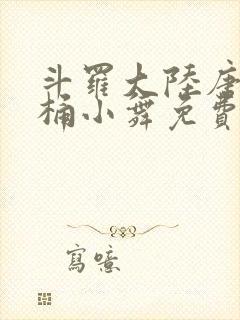 斗羅大陸唐
桶小舞免費
寫噫